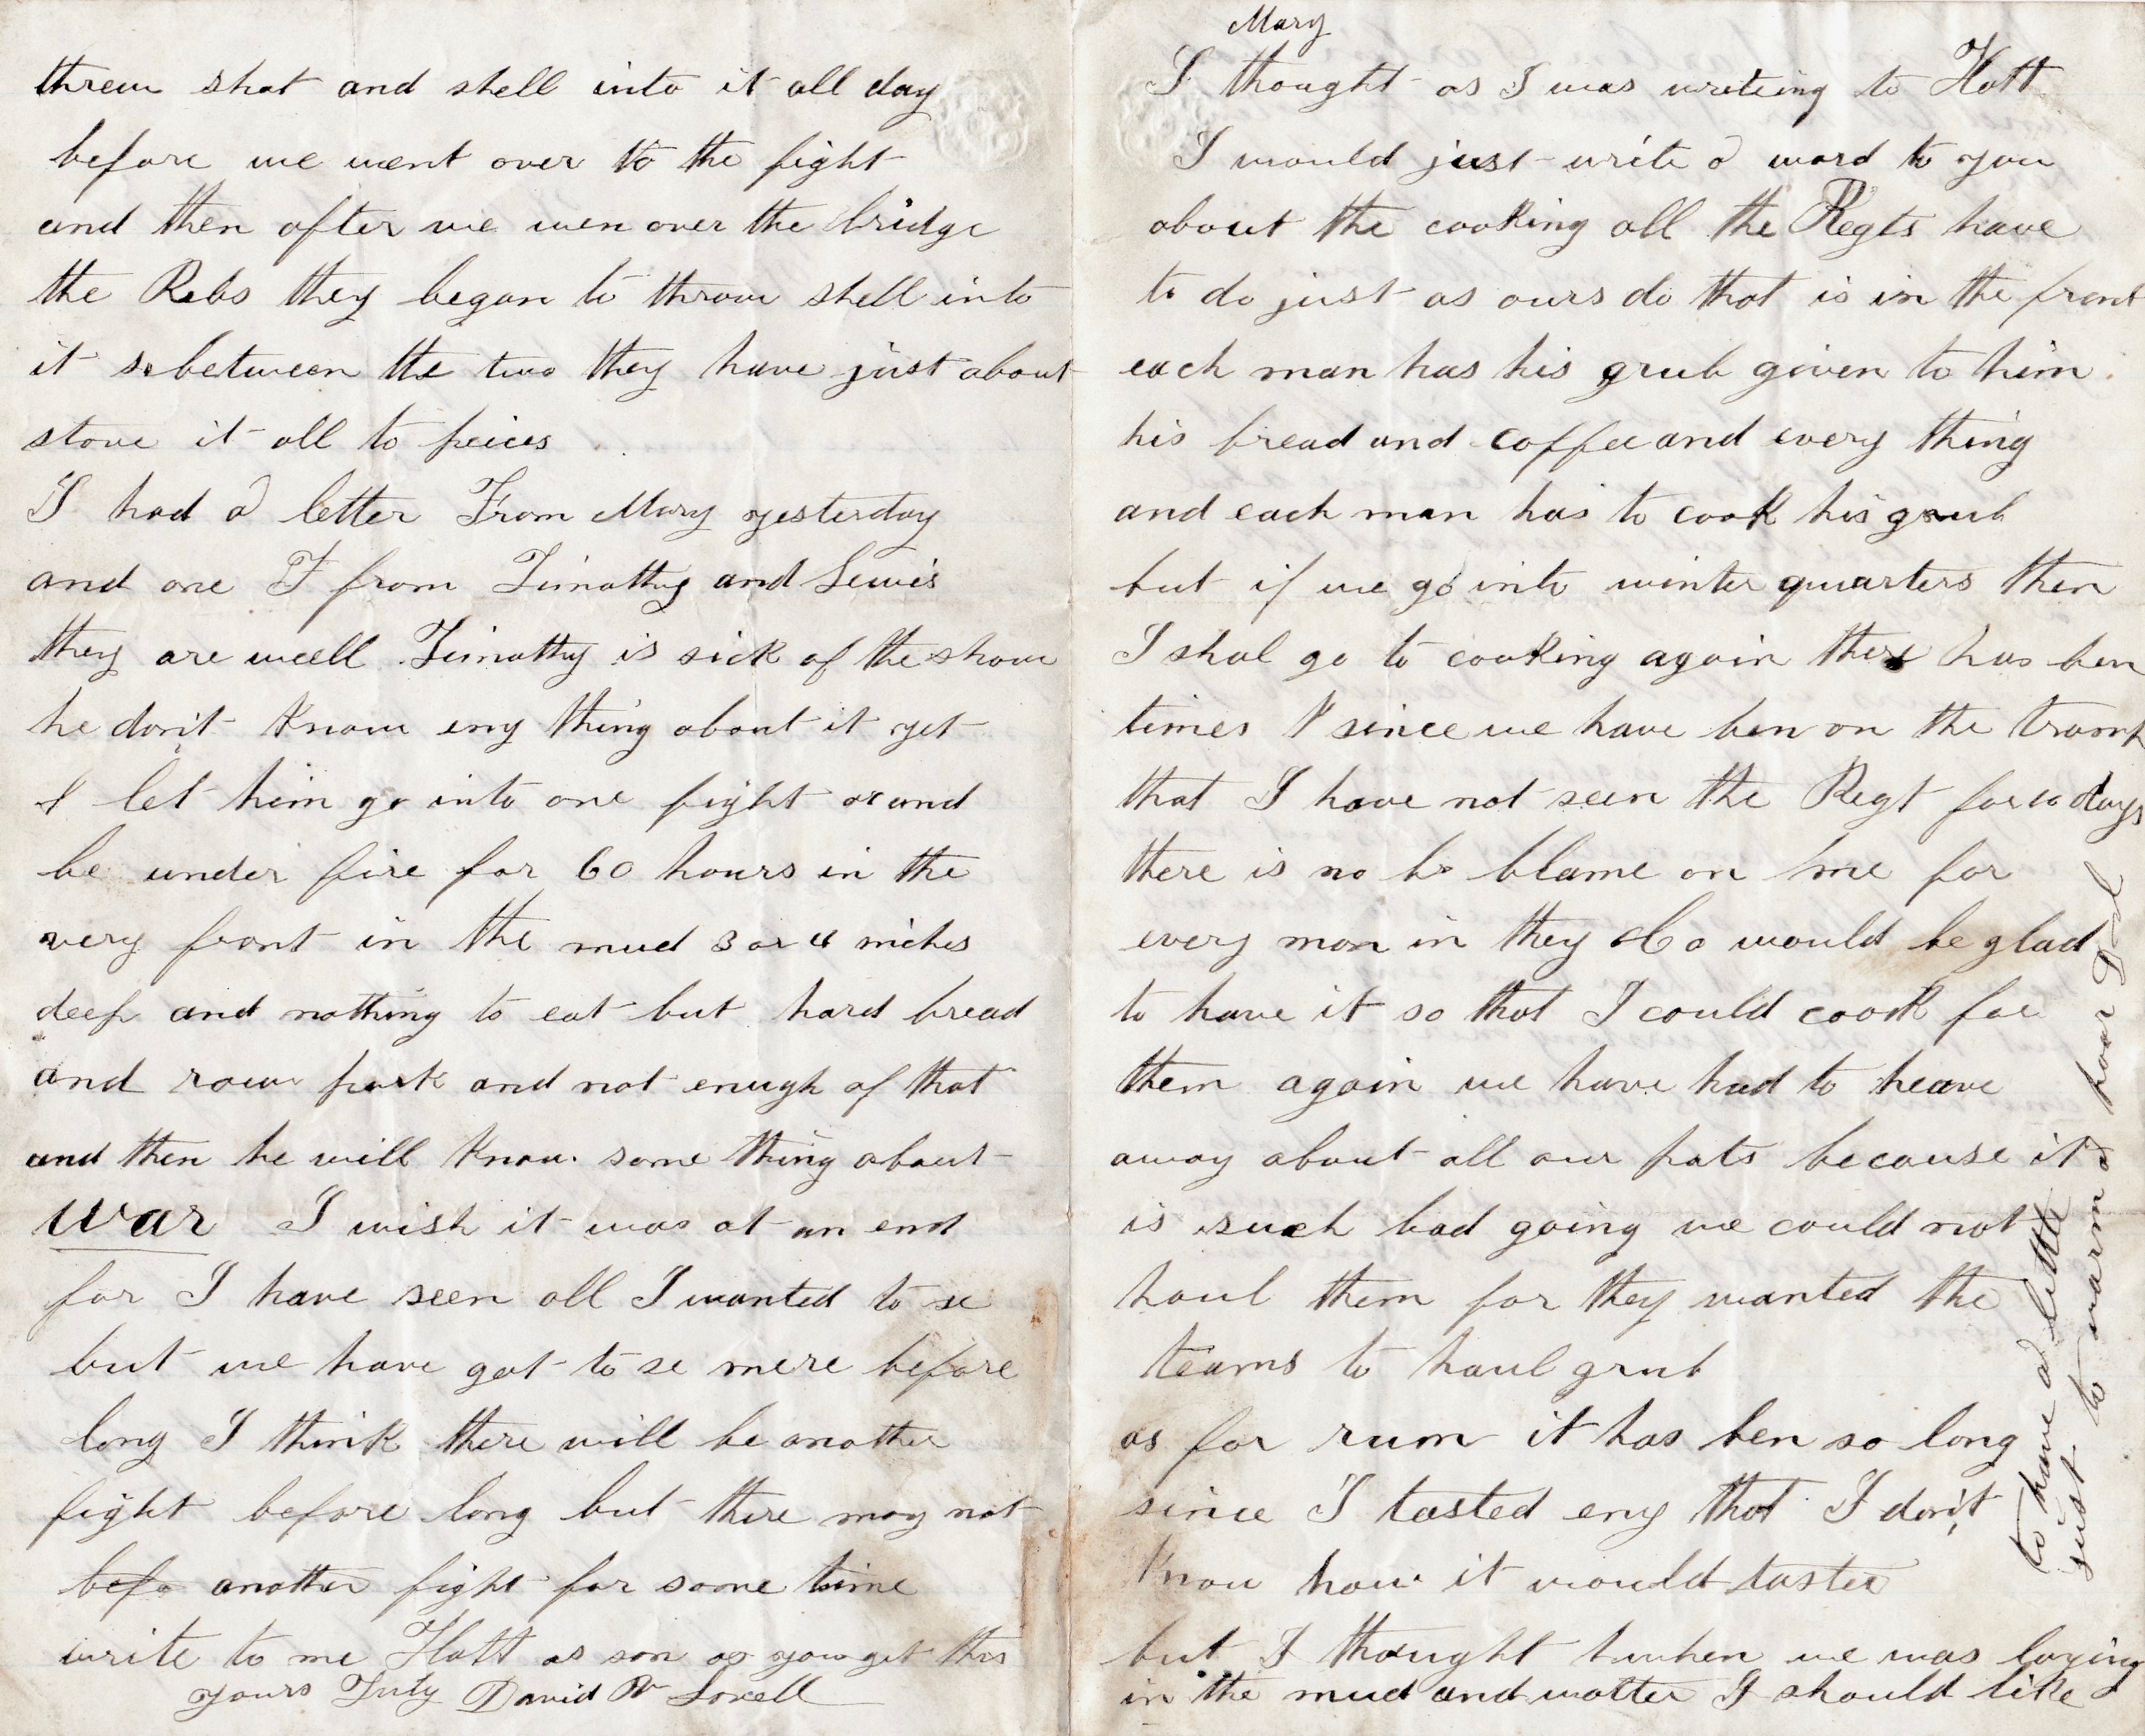 threw shot and shell into it all day
before we went over to the fight
and then after we wen over the bridge
the Rebs they began to throw shell into
it so between the two they have just about
stove it all to peices
I had a letter From Mary yesterday
and one T from Timothy and Lewis
they are weell Timothy is sick of the show
he don't know eny thing about it yet
I let him go into one fight or and
be under fire for 60 hours in the
very front in the mud 3 or 4 inches
deep and nothing to eat but hard bread
and raw pork and not enugh of that
and then he will know some thing about
war I wish it was at an end
for I have seen all I wanted to se
but we have got to se mere before
long I think there will be another
fight before long but there may not
befo another fight for some time
write to me Hatt as son as you get this
yours Truly David W Lovell
Mary
I thought as I was writeing to Hatt
I would just write a word to you
about the cooking all the Regts have
to do just as ours do that is in the front
each man has his grub given to him
his bread and coffee and every thing
and each man has to cook his grub
but if we go into winter quarters then
I shal go to cooking again there has ben
times since we have ben on the tramp
that I have not seen the Regt for 10 days
there is no b blame on me for
every man in they Co would be glad
to have it so that I could cook for
them again we have had to heave
away about all our pots because it
is such bad going we could not
haul them for they wanted the
teams to haul grub
as for rum it has ben so long
since I tasted eny that I don't
know how it would taste
but I thought when we was laying
in the mud and watter I should like
to have a little
just to warm a poor Devl